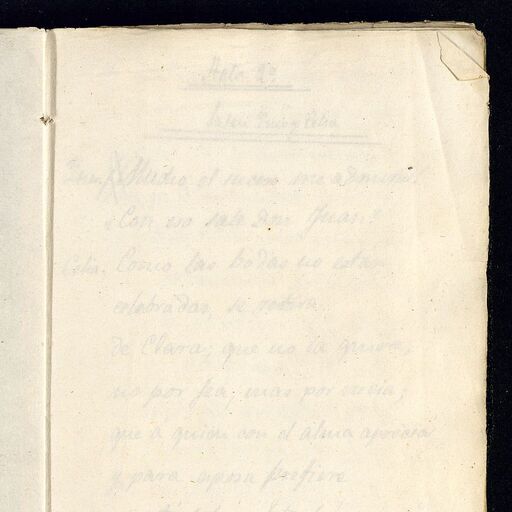 Acto 2º
Inés y Celia
Mucho el suceso me admiró!
¿Con eso sale don Juan?
Celia. Como las bodas no están
celebradas, se retira
de Clara; que no la quiere,
no por fea mas por necia;
que a quien con el alma aprecia
y para esposa prefiere